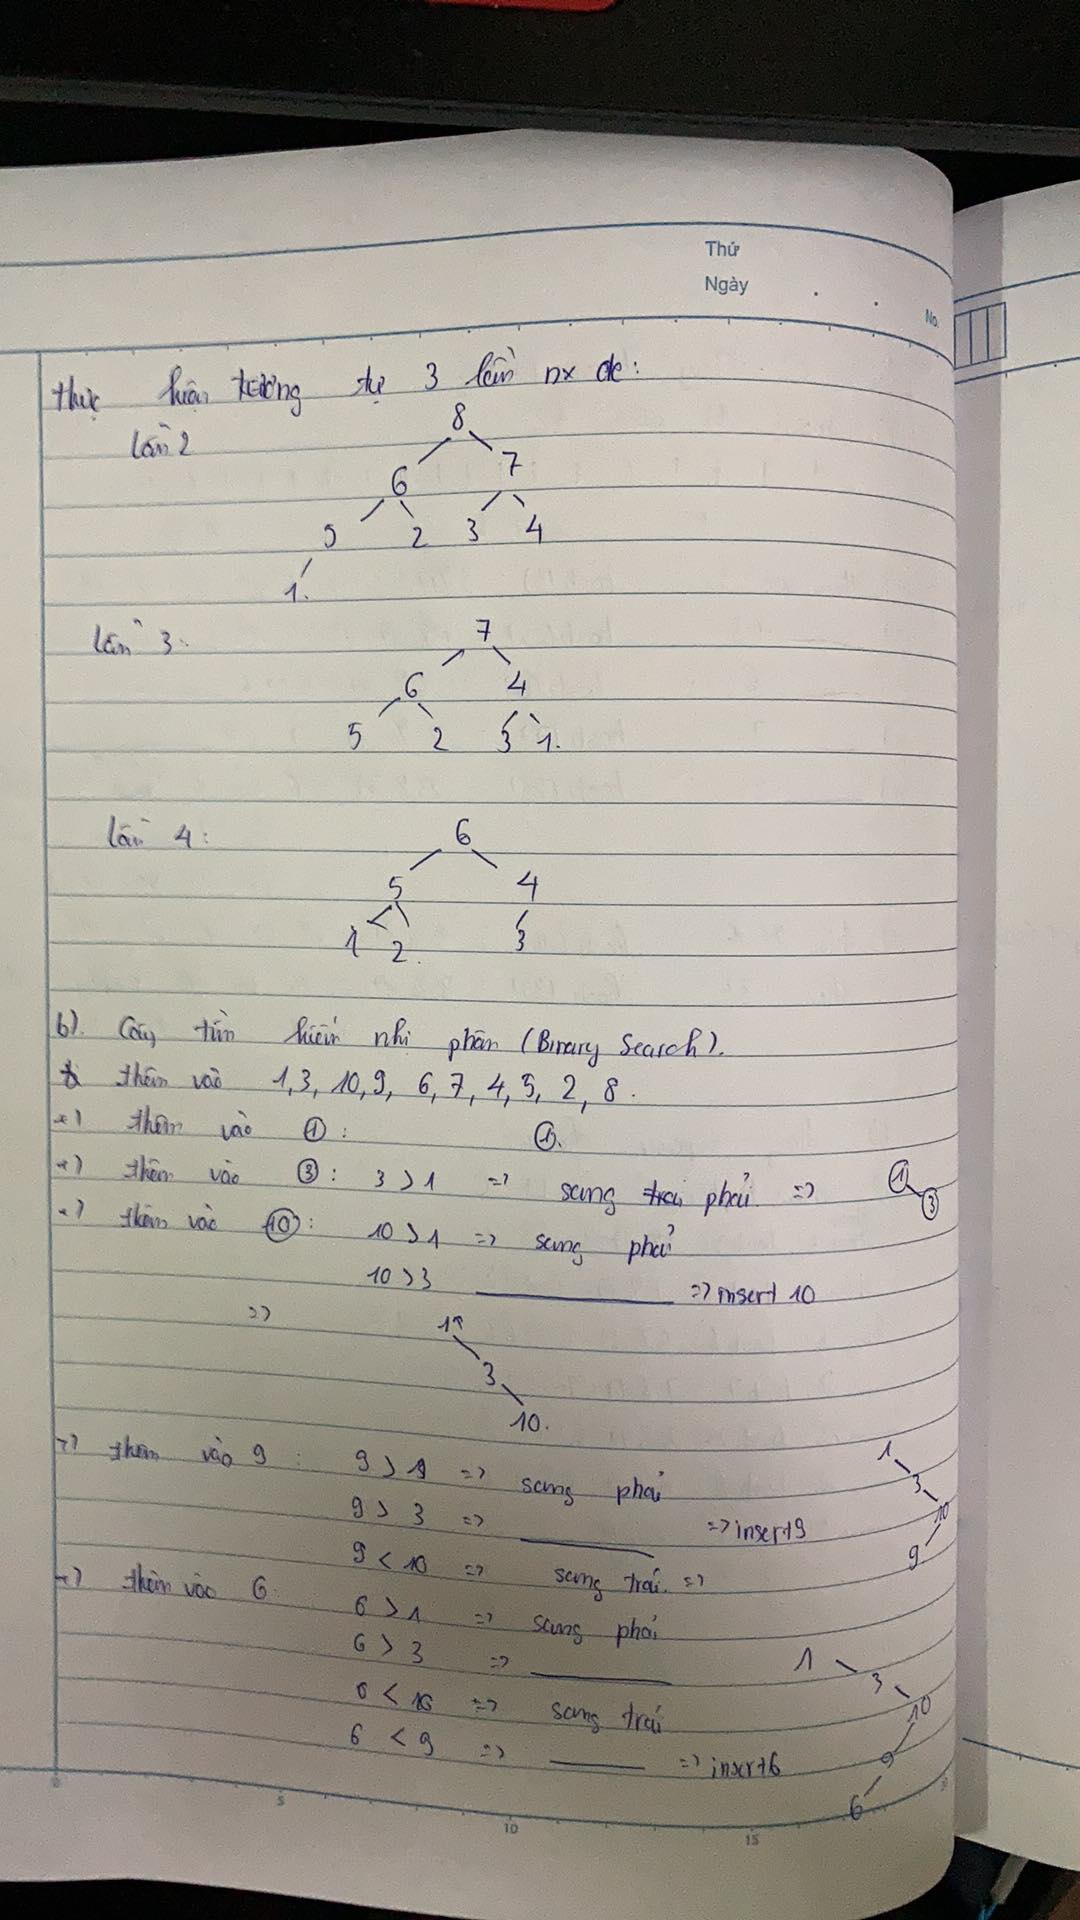 Thứ
Ngày
No.
thực hiện tương tự 3 lần nx dc:
lần 2
8
6 7
5 2 3 4
1.
lần 3:
7
6 4
5 2 3 1.
lần 4:
6
5 4
1 2. 3
b). Cây tìm kiếm nhị phân (Binary Search).
thêm vào 1,3, 10,9, 6,7, 4,5, 2, 8.
+) thêm vào ①: ①.
+) thêm vào ③: 3 > 1 => sang phải => ① ③
+) thêm vào ⑩: 10 > 1 => sang phải
10 > 3 => insert 10
=> 1
3
10.
+) thêm vào 9: 9 > 1 => sang phải 1
9 > 3 => => insert 9 3 10
9 < 10 => sang trái => 9
+) thêm vào 6 6 > 1 => sang phải
6 > 3 => 1 3
6 < 10 => sang trái 10
6 < 9 => => insert 6 9
6
0 5 10 15